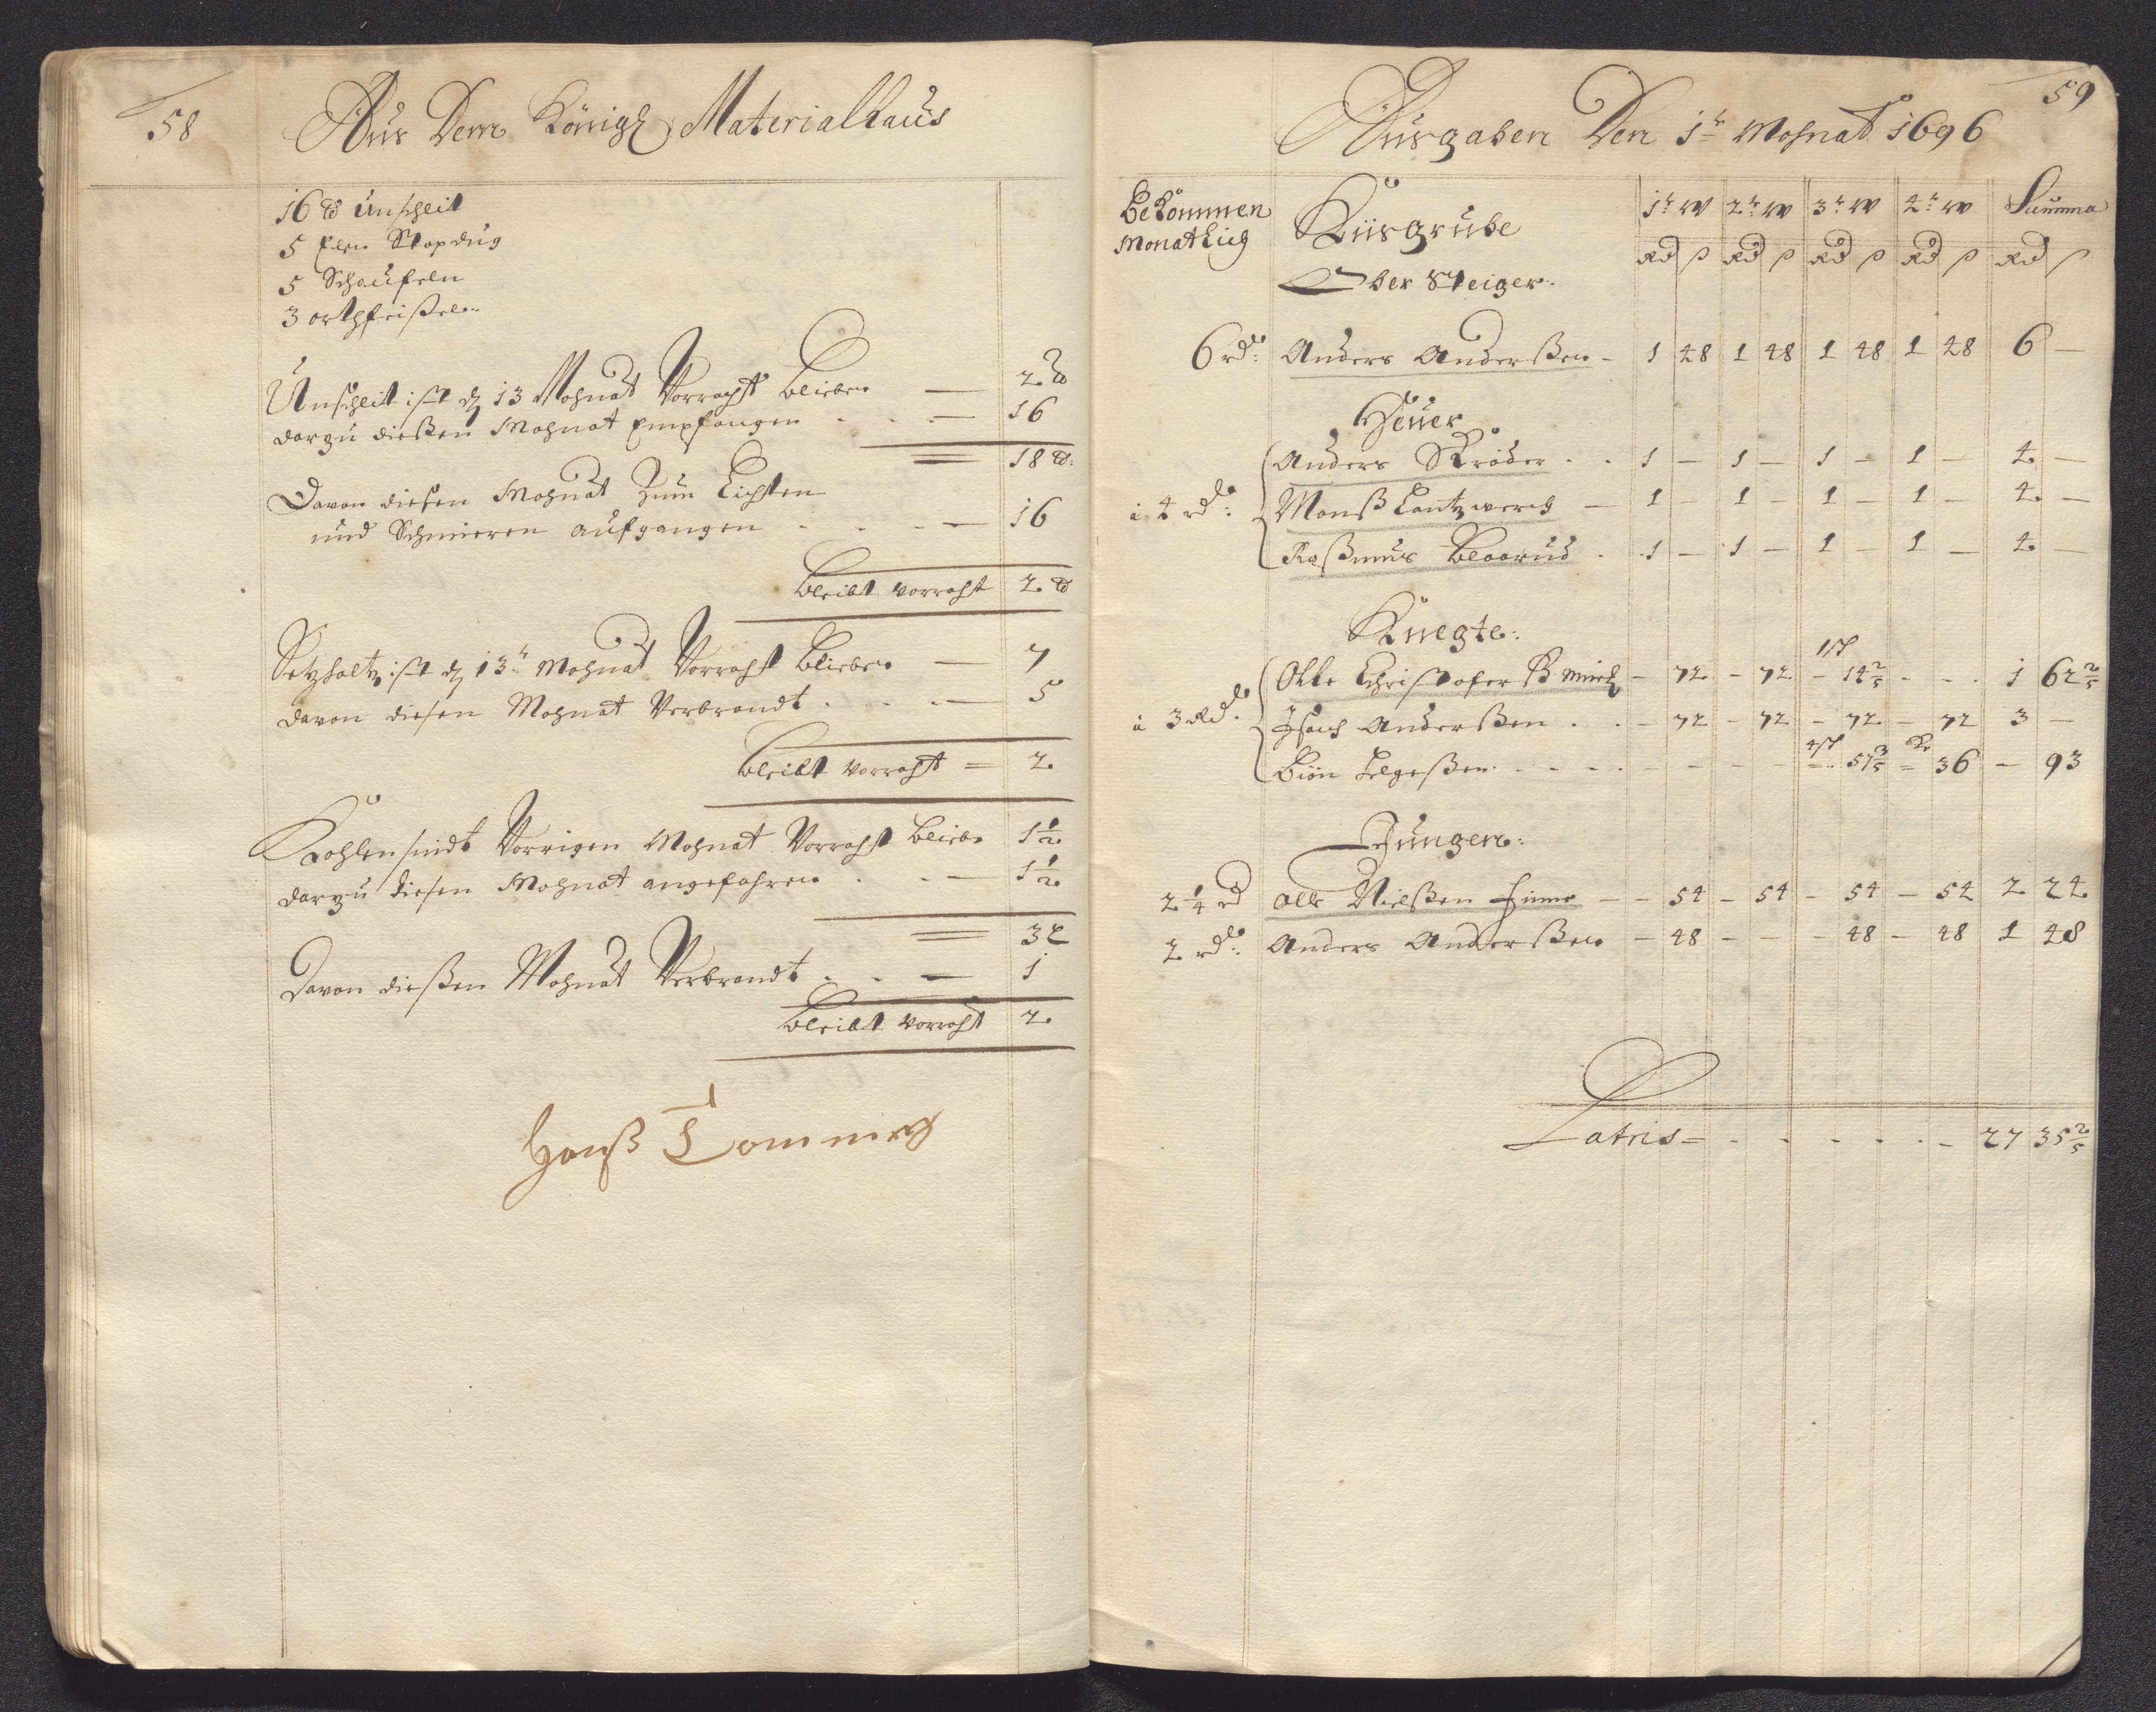 58
Aus Dem Königl Materialhaus
16 ℔ Unscheit
5 Elen Stopdug
5 Schaufeln
Unscheit ist d 13 Mohnat Vorraht blieben — 2 ℔
darzu dießen Mohnat Empfangen — 16
18 ℔:
Davon diesen Mohnat Zum Lichten
und Schmieren aufgangen — 16
bleibt vorraht 2 ℔
Setzholtz ist d 13t Mohnat Vorraht blieben — 7
davon diesen Mohnat Verbrandt — 5
bleibt vorraht = 2
Kohlen sindt Vorrigen Mohnat Vorraht blieb 1½
darzu diesen Mohnat angefahren — 1½
3
Davon dießen Mohnat Verbrandt — 1
bleibt vorraht 2
Hanß
59
Ausgaben Den 1t Mohnat 1696
Bekommen Monatlich
Kiisgrube
1t W 2t W 3t W 4t W Summa
Rd ß Rd ß Rd ß Rd ß Rd ß
Ober Steiger
6 rd: Anders Anderßen - 1 48 1 48 1 48 1 48 6 —
Heuer
Anders Skröder - 1 — 1 — 1 — 1 — 4 —
à 4 rd: Monß Lantzwerch — 1 — 1 — 1 — 1 — 4 —
Raßmus Blaarud - 1 — 1 — 1 — 1 — 4 —
Knegte:
Olle Christofer ß Mück - 72 - 72 - 14 2/5 - - - 1 62 2/5
à 3 Rd: Isach Anderßen - - 72 - 72 - 72 - 72 3 —
Biön Helgeßen - - - - - - 57 3/5 - 36 - 93
Jungen:
2 1/4 rd Olle Nielßen Finne - - 54 - 54 - 54 - 54 2 24
2 rd: Anders Anderßen - 48 - - - 48 - 48 1 48
Latris = - - - - - - 27 35 2/5